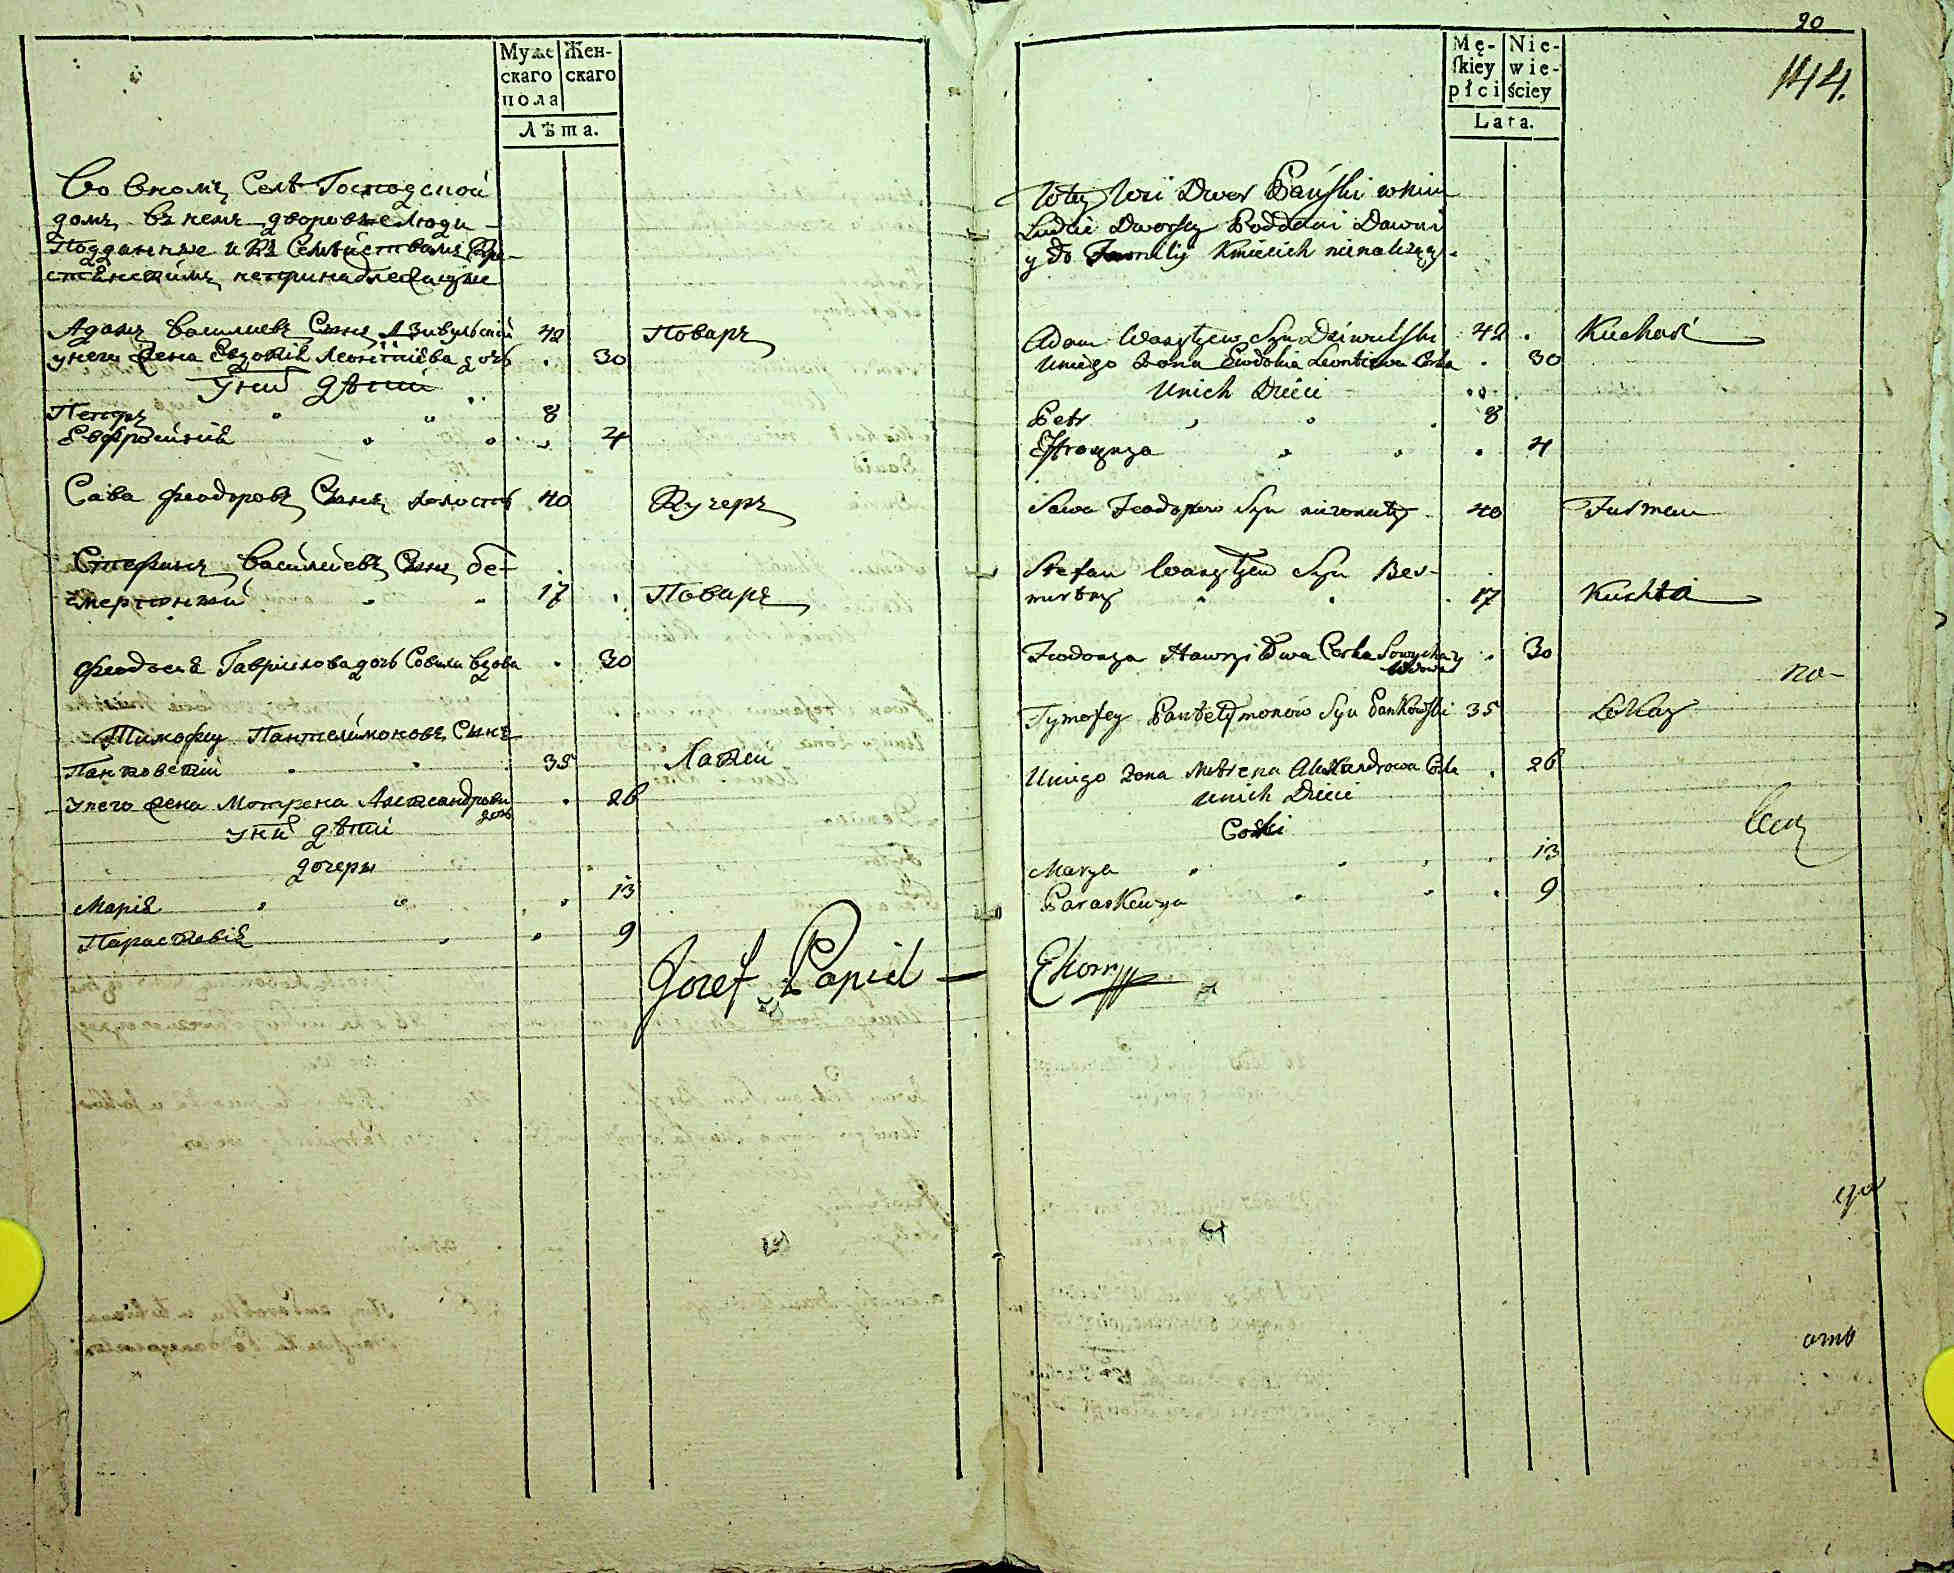 20
144.
Муже
скаго
пола
Жен-
скаго
Лѣта.
Во Ономъ Селѣ Господской
домъ, въ немъ дворовые Люди
Подданные и къ Семействамъ Кре-
стьянскимъ непринадлежащие
Адамъ Василиевъ Сынъ Дзивульский 42 Поваръ
у него жена Евдокия Леонтиева дочь . 30
У них дѣти
Петръ 8
Евфросиния 4
Сава Феодоровъ Сынъ холостъ 40 Кучеръ
Стефанъ Василиевъ Сынъ бе-
смертный 17 Поваръ
Феодосия Гаврилова дочь вдова . 30
Тимофей Пантелимоновъ Сынъ
Панковский 35 Лакей
у него жена Мотрена Александрова дочь . 26
у них дѣти
дочеры
Мария 13
Параскевия 9
Jozef Papiel —
Mę-
skiey
płci
Nie-
wie-
ściey
Lata.
W tey Wsi Dwor Pański w nim
Ludzie Dworscy Poddani Dawni
y do Familij Kmiecich nienalezący.
Adam Wasylew Syn Dziwulski 42 . Kucharz
U niego Zona Ewdokia Leontiewa Corka . 30
U nich Dzieci
Petr 8
Effrozyna . 4
Sawa Feodorow Syn niezonaty 40 Furman
Stefan Wasylew Syn Bes-
mertny 17 Kuchta
Feodozya Corka Wdowa . 30
no-
Tymofey Pantelymonow Syn Pankowski 35 Lokay
U niego Zona Motrena Alexandrowa Corka . 26
U nich Dzieci
Corki
Marya . 13
Paraskewya . 9
Ekonm
отъ